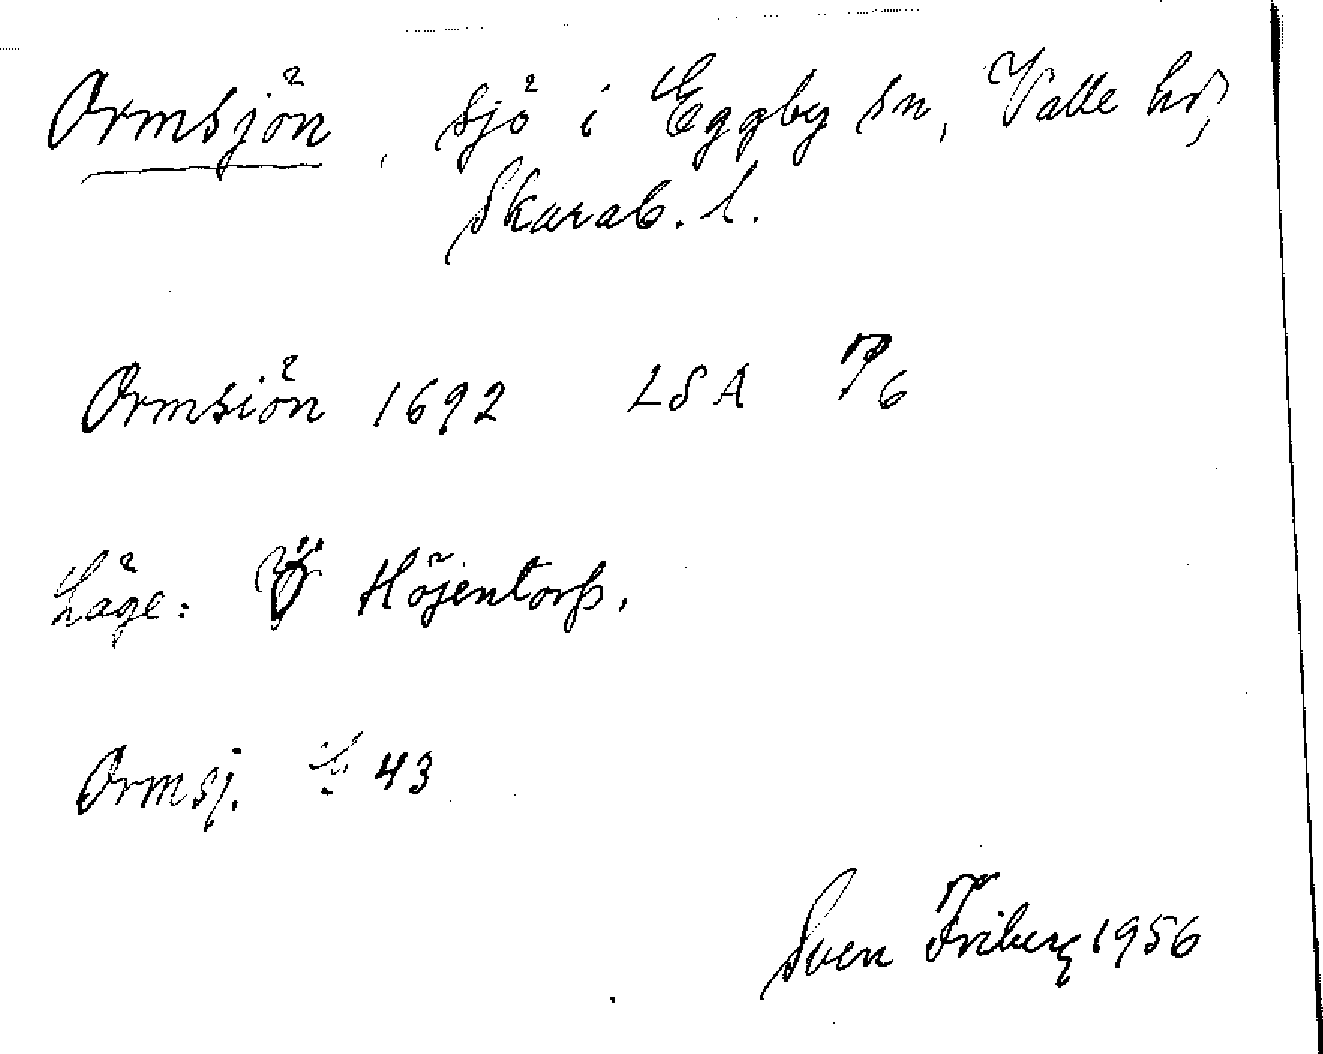 Ormsjön, sjö i Eggby sn, Valle hd,
Skarab. l.
Ormsiön 1692 LSA P6
Läge: Höjentorp.
Ormsj. 43
Sven Friberg 1956